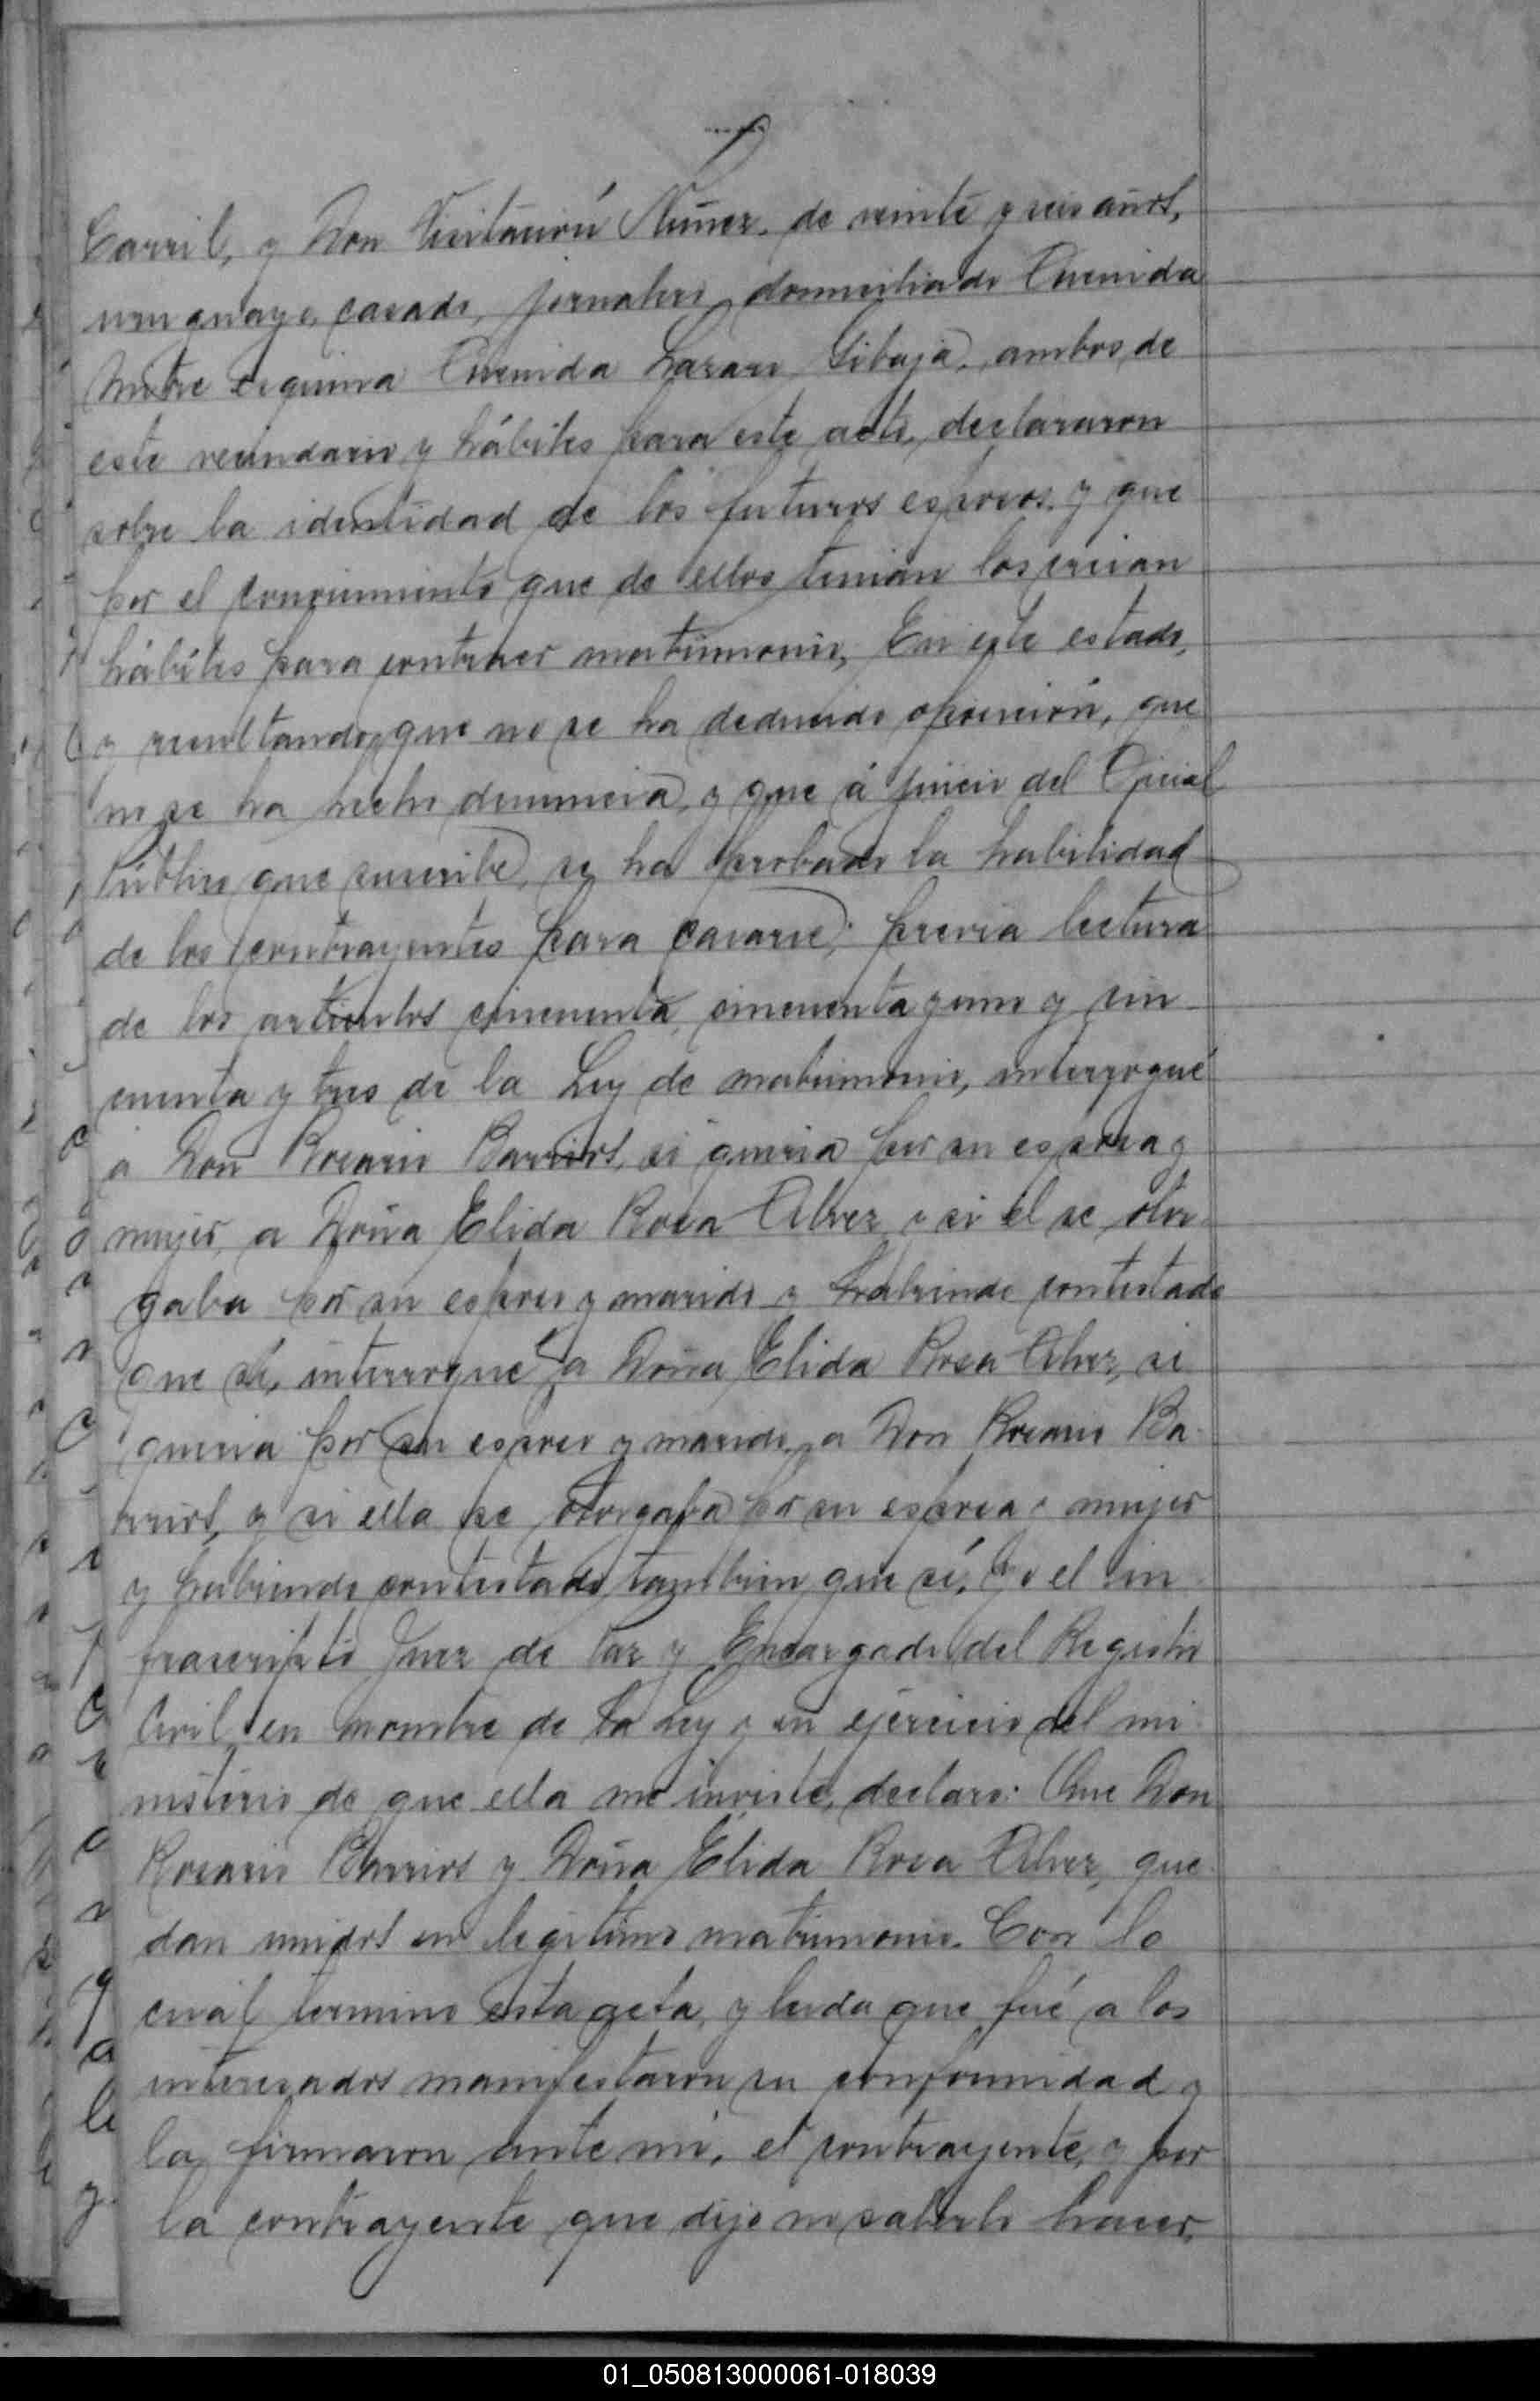 Carril, y Don Visitación Núñez, de veinte y seis años,
uruguayo, casado, jornalero, domiciliado Avenida
Mitre esquina Avenida Lázaro Gibaja, ambos de
este vecindario y hábiles para este acto, declararon
sobre la identidad de los futuros esposos, y que
por el conocimiento que de ellos tenian los creian
hábiles para contraer matrimonio, En este estado,
y resultando que no se ha deducido oposición, que
no se ha hecho denuncia, y que á juicio del Oficial
Público que suscribe, se ha probado la habilidad
de los contrayentes para casarse; previa lectura
de los articulos cincuenta, cincuenta y uno y cin
cuenta y tres de la Ley de matrimonio, interrogué
á Don Rosario Barrios, si queria por su esposa y
mujer, a Doña Elida Rosa Alvez y si él se otor
gaba por su esposo y marido y habiendo contestado
que sí, interrogué a Doña Elida Rosa Alvez, si
queria por su esposo y marido, a Don Rosario Ba
rrios, y si ella se otorgaba por su esposa y mujer
y habiendo contestado tambien que sí, Yo el in
frascripto Juez de Paz y Encargado del Registro
Civil, en nombre de la Ley y en ejercicio del mi
nisterio de que ella me inviste, declaro: Que Don
Rosario Barrios y Doña Elida Rosa Alvez, que
dan unidos en legitimo matrimonio. Con lo
cuál termino esta acta, y leida que fué a los
interesados manifestaron su conformidad y
la firmaron ante mi, el contrayente, y por
la contrayente que dijo no saberlo hacer,
01_050813000061-018039